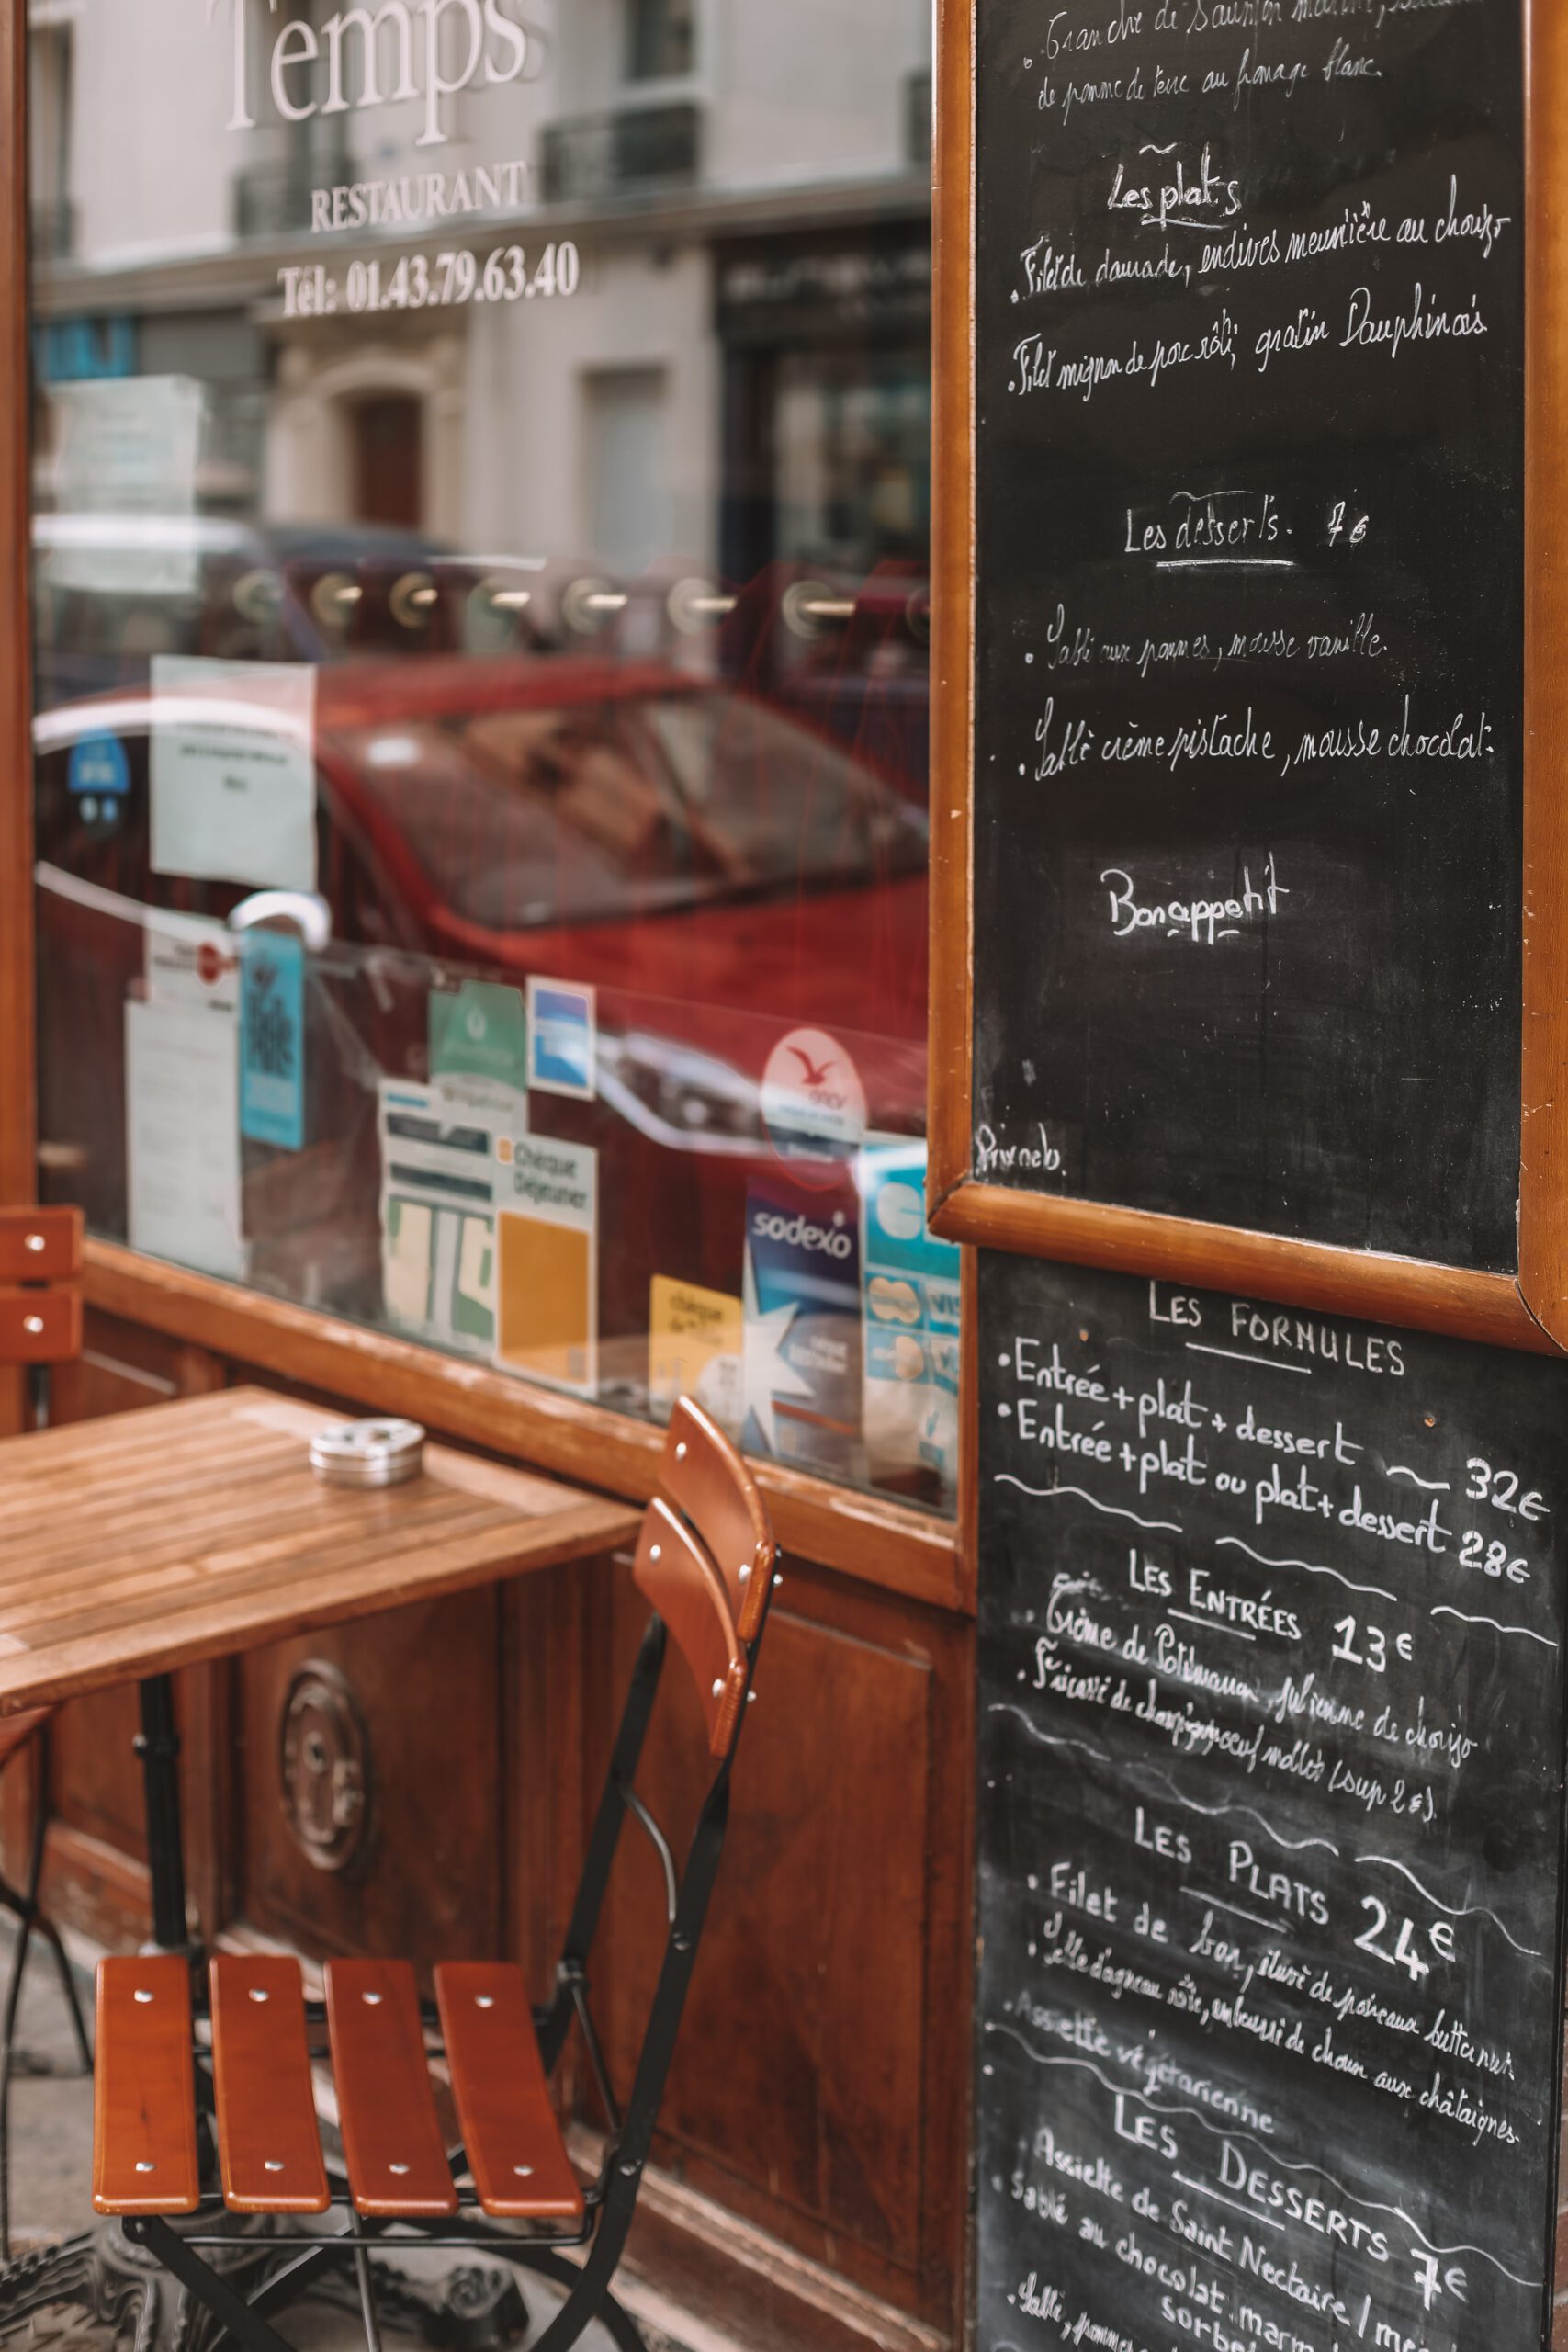 Temps
RESTAURANT
Tél: 01.43.79.63.40
Chèque
Déjeuner
sodexo
chèque
VIS
de pomme de terre au fromage blanc.
Les plats
. Filet de daurade, endives meunière au chorizo
. Filet mignon de porc rôti, gratin Dauphinois
Les desserts. 7€
. Sablé aux pommes, mousse vanille.
. Sablé crème pistache, mousse chocolat.
Bon appetit
Prix nets.
LES FORMULES
• Entrée + plat + dessert 32€
• Entrée + plat ou plat + dessert 28€
LES ENTRÉES 13€
. Crème de Potimarron, julienne de chorizo
. Fricassé de champignons oeuf mollet (sup 2€).
LES PLATS 24€
. Filet de bar, de poireaux butternut
. Selle d'agneau rôtie, de choux aux châtaignes
. Assiette végétarienne
LES DESSERTS 7€
. Assiette de Saint Nectaire /
. Sablé au chocolat
sorbet
. Sablé, pommes